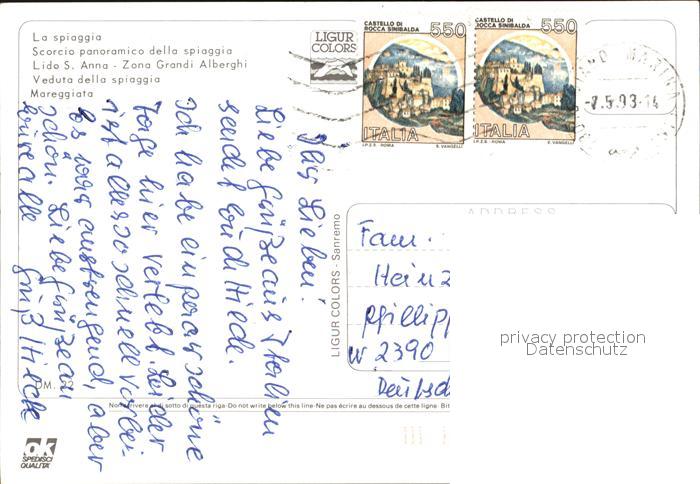 La spiaggia
Scorcio panoramico della spiaggia
Lido S. Anna - Zona Grandi Alberghi
Veduta della spiaggia
Mareggiata
LIGUR
COLORS
CASTELLO DI
ROCCA SINIBALDA
550
ITALIA
I.P.Z.S. - ROMA
E. VANGELLI
CASTELLO DI
ROCCA SINIBALDA
550
ITALIA
I.P.Z.S. - ROMA
E. VANGELLI
MARINA
-7.5.93-14
Ihr Lieben!
Liebe Grüße aus Italien
sendet Euch Hede.
Ich habe ein paar schöne
Tage hier verlebt. Leider
ist alles so schnell vorbei.
Es war anstrengend, aber
schön. Liebe Grüße an
Euch alle Gruß Hede
LIGUR COLORS - Sanremo
ADDRESS
Fam.
Heinz
Phillipp
W 2390
Deutsch
privacy protection
Datenschutz
Non scrivere al di sotto di questa riga-Do not write below this line-Ne pas écrire au dessous de cette ligne Bit
ok
SPEDISCI
QUALITA'